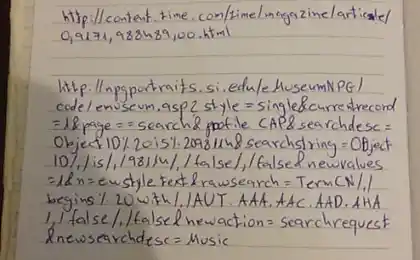 http://content.time.com/time/magazine/article/
0,9171,988489,00.html
http://npgportraits.si.edu/eMuseumNPG/
code/emuseum.asp2 style=single&currentrecord
=1&page==search&profile CAP&searchdesc=
Object ID%20is%2098
&searchstring=OBject
ID/,/is/,/98
/,/false/,/false&newvalues
=1&n=ewstyle text&rawsearch=TermCN/,/
begins%20with/,/AUT.AAA.AAC.AAD.AHA
/,/false/,/false&newaction=searchrequest
&newsearchdesc=Music